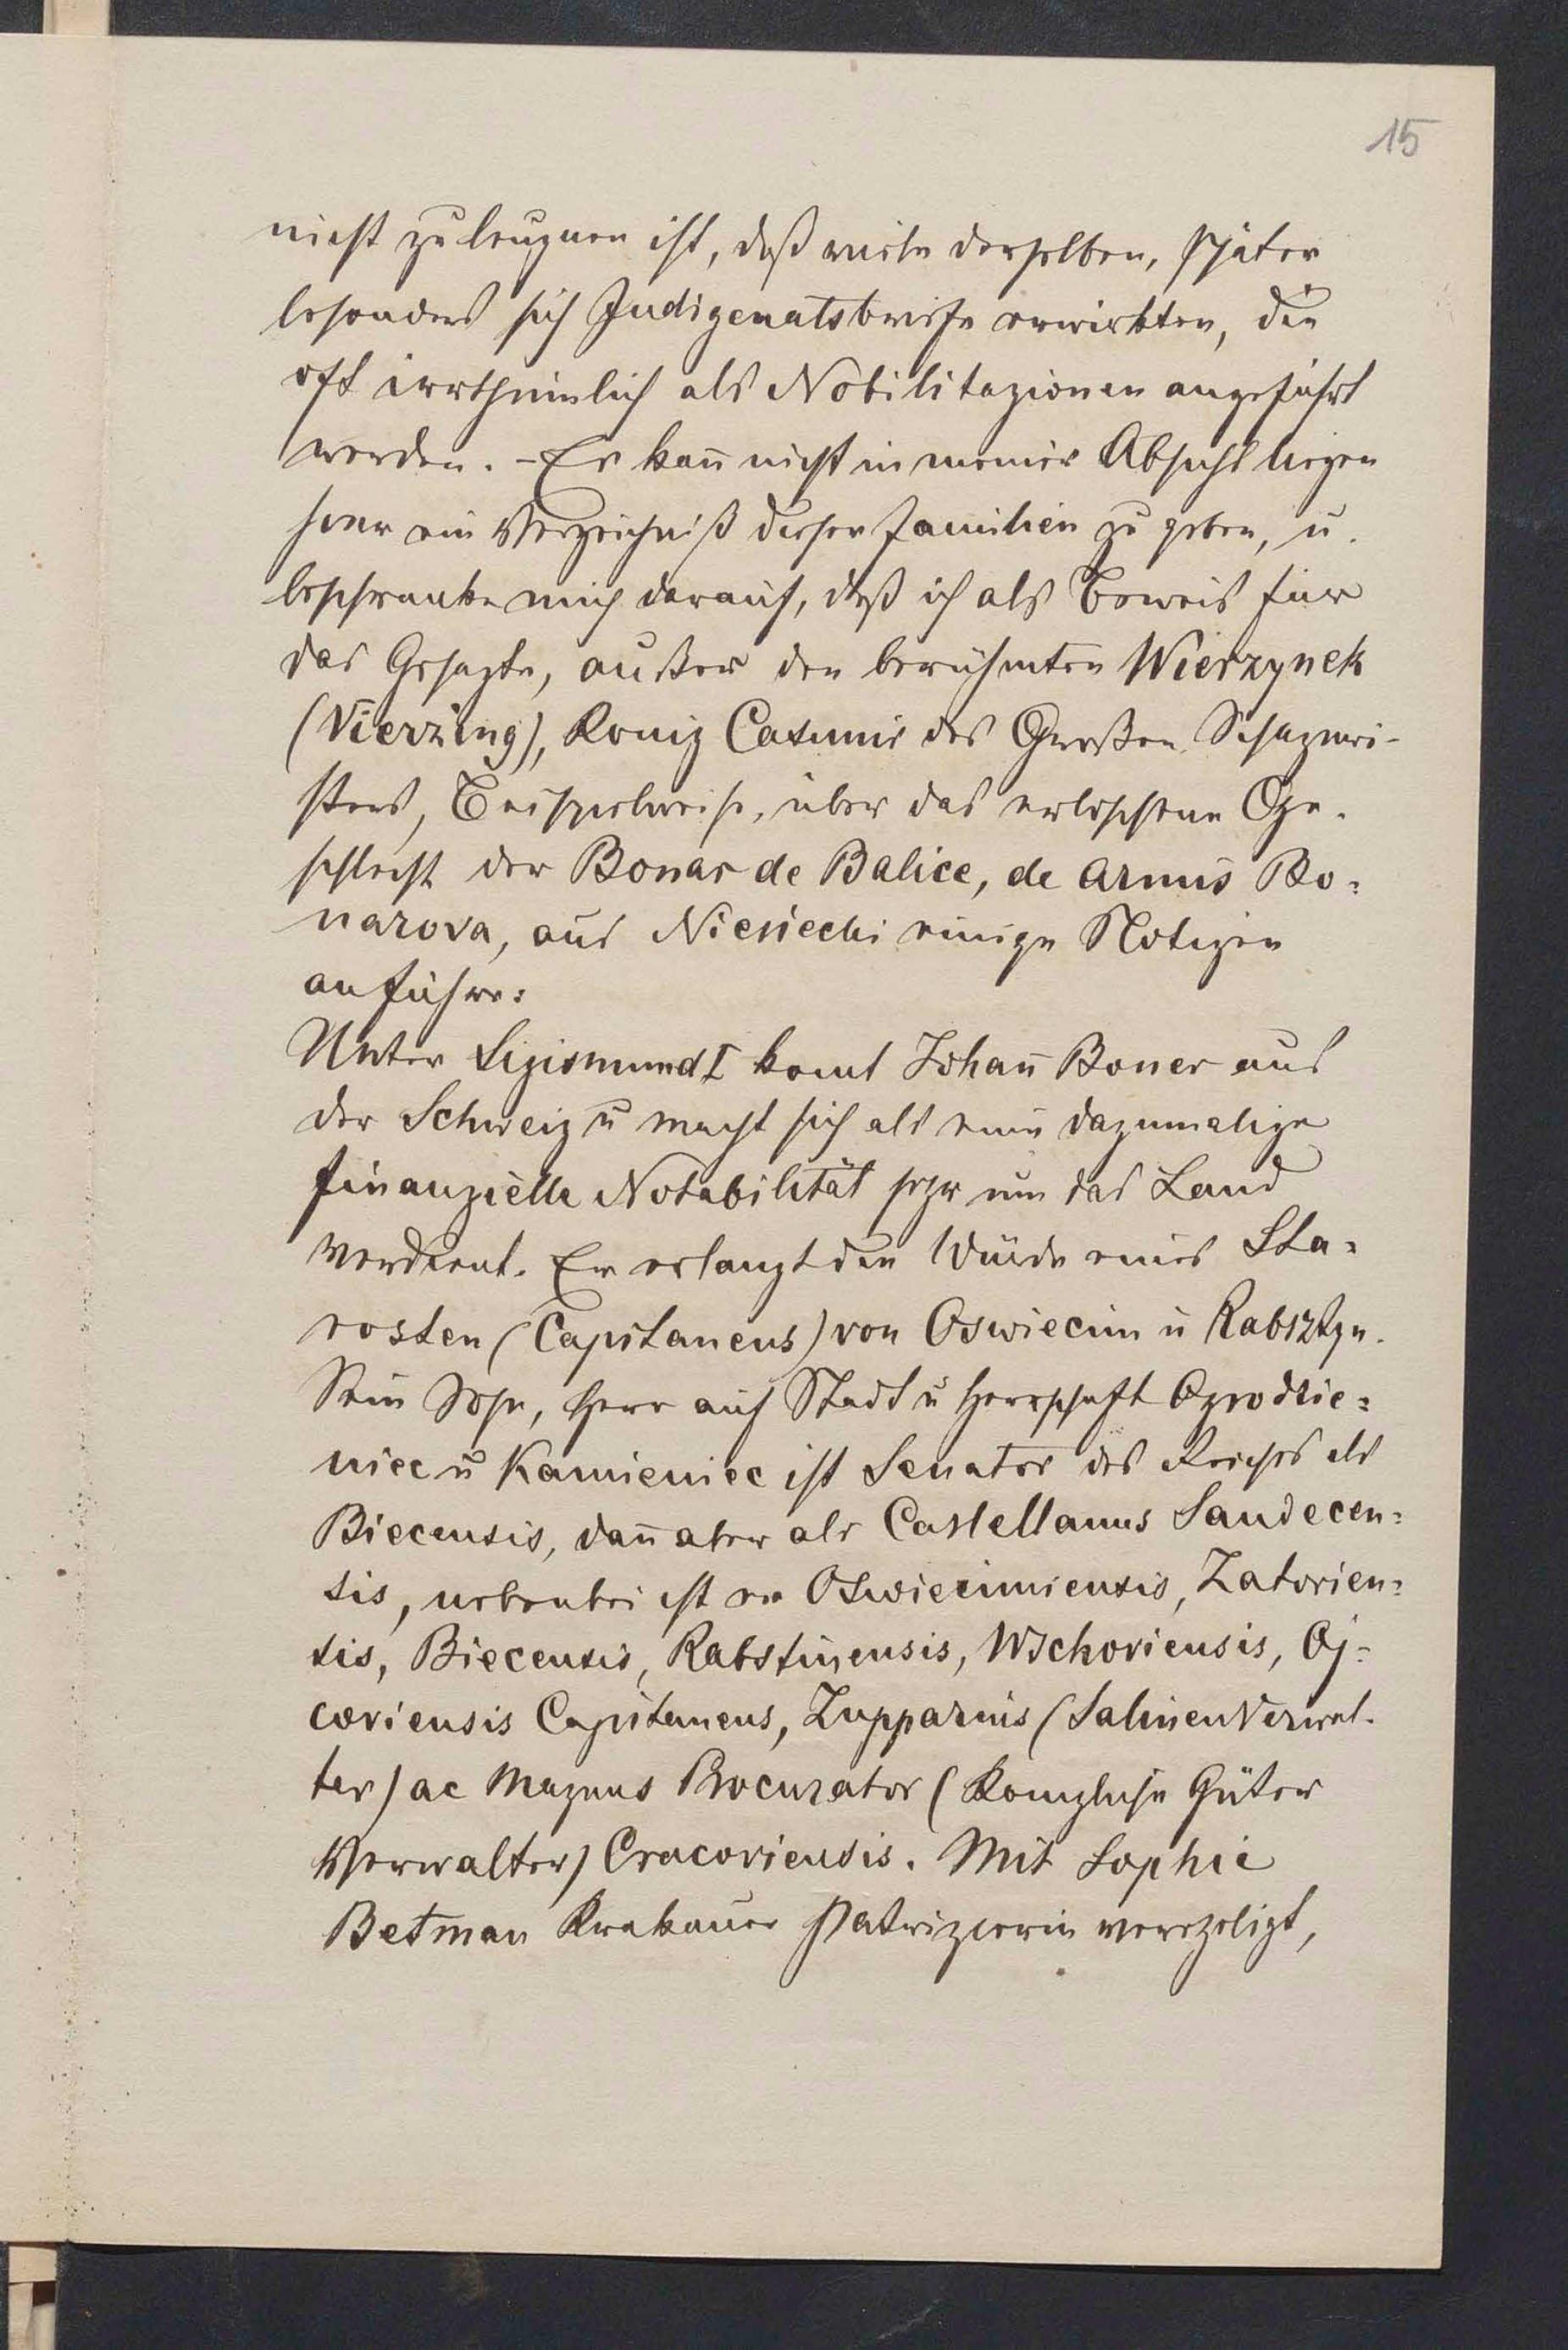 15
nicht zu leugnen ist, daß viele derselben, später
besonders sich Indigenatsbriefe erwirkten, die
oft irrthümlich als Nobilitazionen angeführt
werden. - Es kan̄ nicht in meiner Absicht liegen
hier ein Verzeichniß dieser Familien zu geben, u.
beschranke mich darauf, daß ich als Beweis für
das Gesagte, außer den berühmten Wierzynek
(Vierzing), Konig Casimir des Großen Schazmei-
sters, Beispielweise, über das erloschene Ge-
schlecht der Bonar de Balice, de armis Bo=
narova, aus Niesiecki einige Notizen
anführe:
Unter Sigismund I komt Johan̄ Boner aus
der Schweiz u macht sich als eine dazumalige
finanzielle Notabilität sehr um das Land
verdient. Er erlangt die Würde eines Sta=
rosten (Capitaneus) von Oswiecim u Rabsztyn.
Sein Sohn, Herr auf Stadt u Herrschaft Ogrodzie=
niec u Kamieniec ist Senator des Reiches als
Biecensis, dan̄ aber als Castellanus Sandecen=
sis, nebenbei ist er Oswiecimiensis, Zatorien=
sis, Biecensis, Rabstinensis, Wschoviensis, Oj=
coviensis Capitaneus, Zupparius (Salinen Verwal-
ter) ac Magnus Procurator (Konigliche Güter
Verwalter) Cracoviensis. Mit Sophie
Betman Krakauer Patrizierin verehligt,